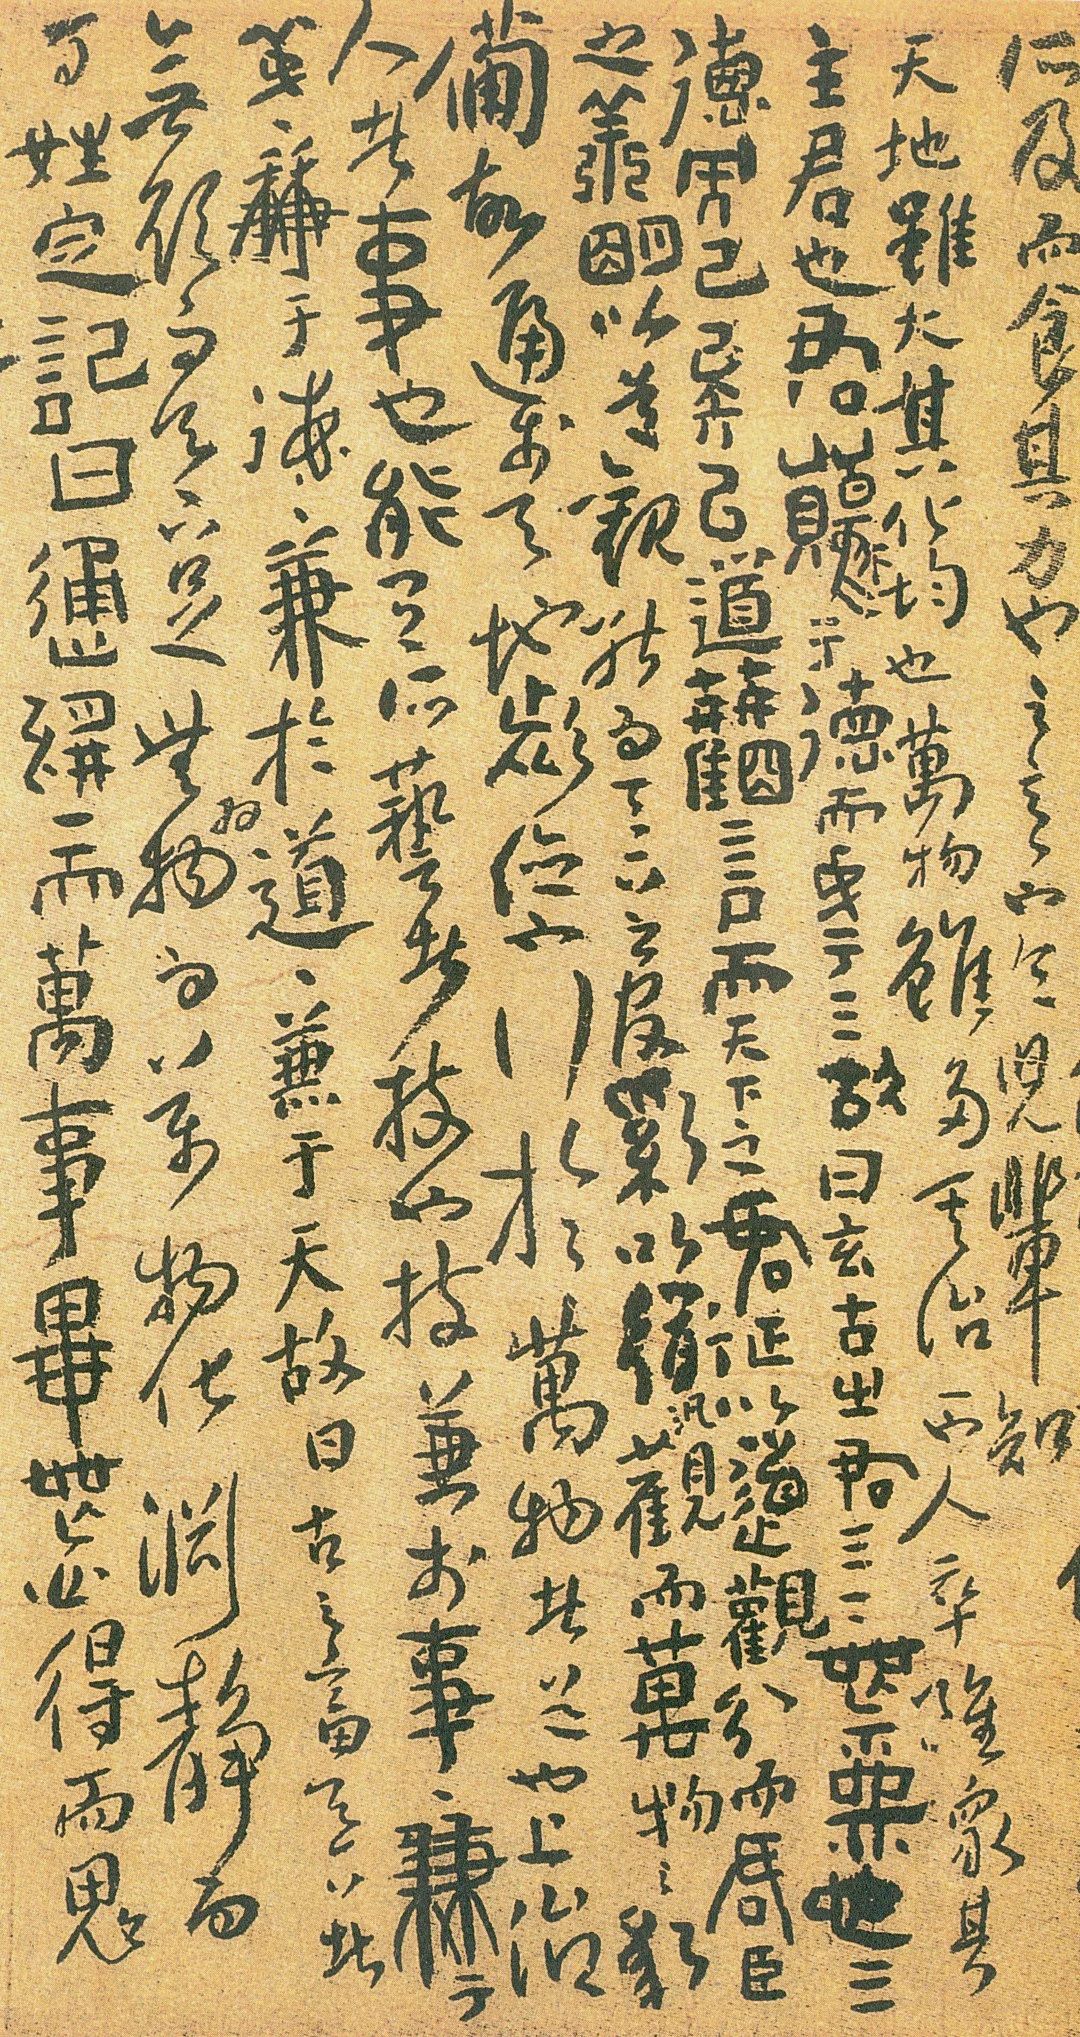 及而食其力也
天地雖大其化均也萬物雖多其治一也人卒雖衆其
主君也君原于德而成于天故曰玄古之君天下無爲也天
德而已矣以道觀言而天下之君正以道觀分而君臣
之義明以道觀能而天下之官治以道汎觀而萬物之應
備故通於天地者德也行於萬物者道也上治
人者事也能有所藝者技也技兼於事事兼于
義義兼于德德兼於道道兼于天故曰古之畜天下者
無欲而天下足無爲而萬物化淵靜而
百姓定記曰通於一而萬事畢無心得而鬼